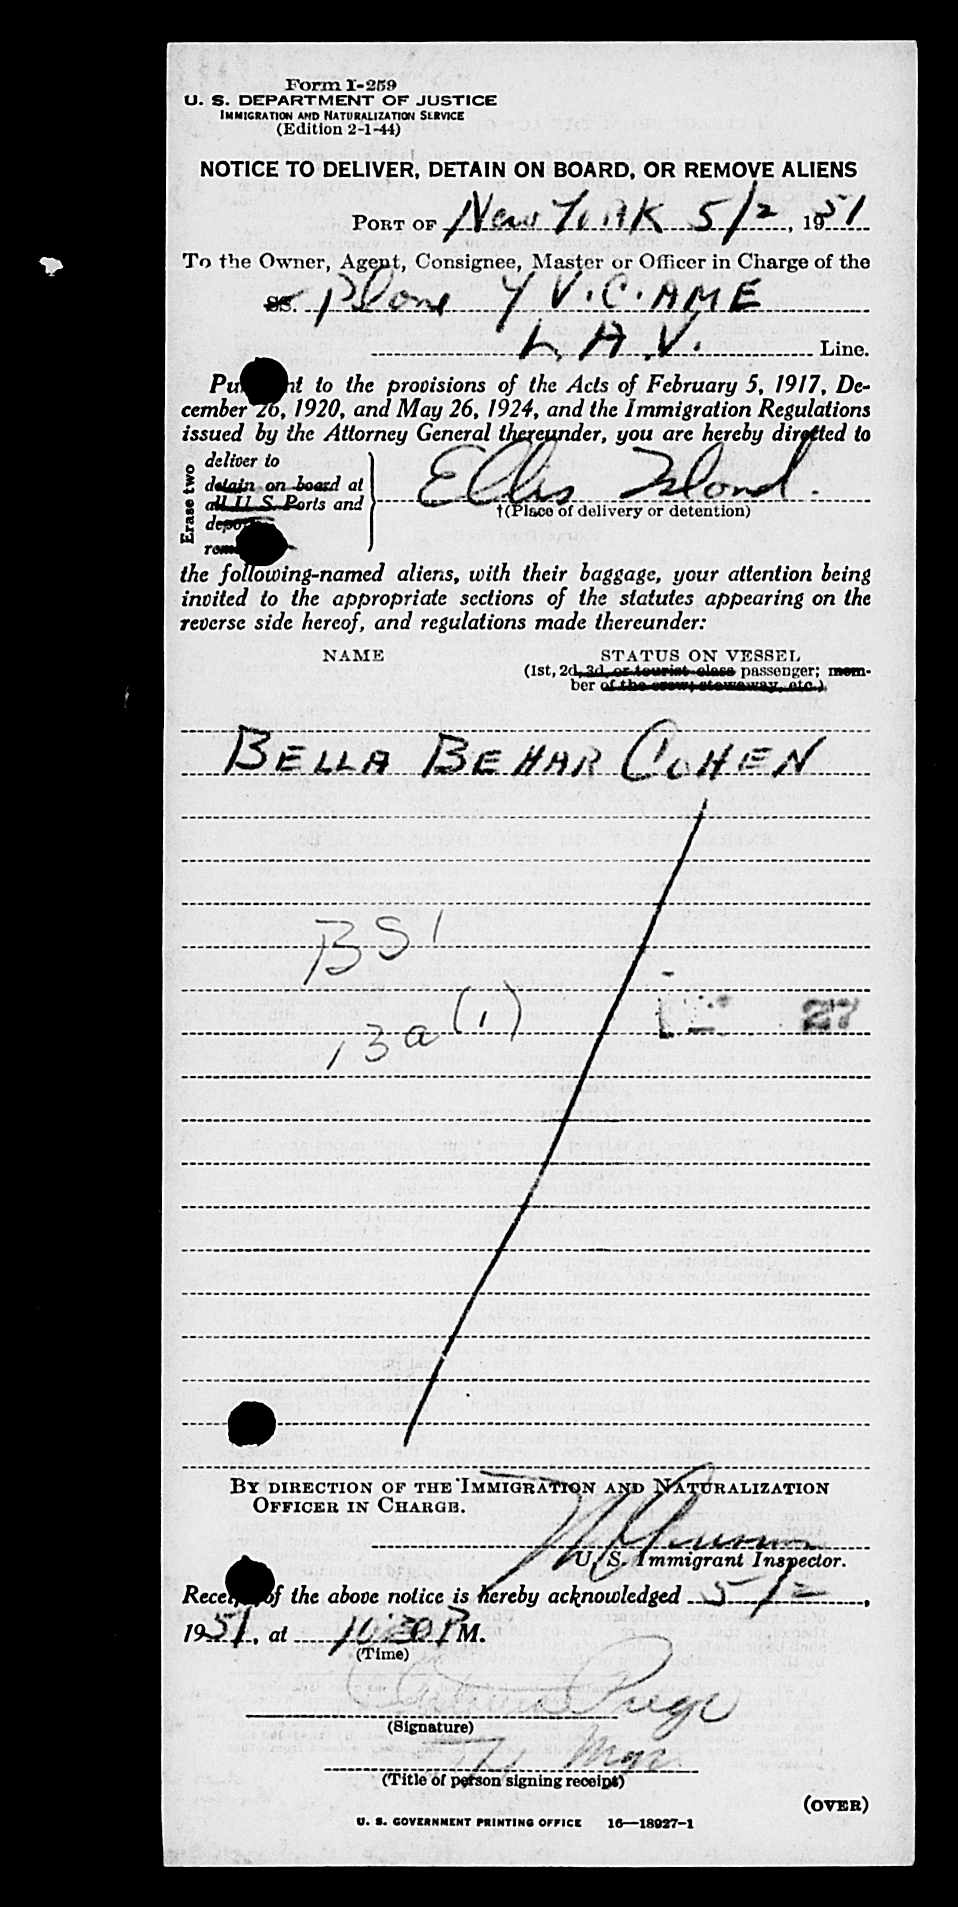 Form I-259
U. S. DEPARTMENT OF JUSTICE
IMMIGRATION AND NATURALIZATION SERVICE
(Edition 2-1-44)
NOTICE TO DELIVER, DETAIN ON BOARD, OR REMOVE ALIENS
PORT OF New YORK 5/2, 1951
To the Owner, Agent, Consignee, Master or Officer in Charge of the
SS. Plane Y V.C.AME
L.A.V. Line.
Pu nt to the provisions of the Acts of February 5, 1917, De-
cember 26, 1920, and May 26, 1924, and the Immigration Regulations
issued by the Attorney General thereunder, you are hereby directed to
Erase two
deliver to
detain on board at
all U. S. Ports and
Ellis Island.
†(Place of delivery or detention)
the following-named aliens, with their baggage, your attention being
invited to the appropriate sections of the statutes appearing on the
reverse side hereof, and regulations made thereunder:
NAME STATUS ON VESSEL
(1st, 2d, 3d, or tourist class passenger; mem-
ber of the crew; stowaway, etc.)
BELLA BEHAR COHEN
BSI
13a (1)
27
BY DIRECTION OF THE IMMIGRATION AND NATURALIZATION
OFFICER IN CHARGE.
U. S. Immigrant Inspector.
Receipt of the above notice is hereby acknowledged 5/2,
1951, at 10:30 P M.
(Time)
(Signature)
Mgr.
(Title of person signing receipt)
(OVER)
U. S. GOVERNMENT PRINTING OFFICE 16—18927-1